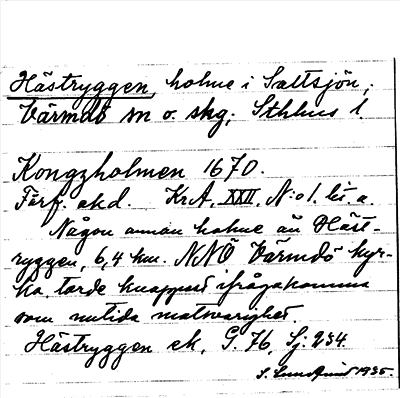 Hästryggen, holme i Saltsjön,
Värmdö sn o. skg, Sthlms l.
Kongzholmen 1670.
Förf. akd. KrA, XXII, N:o 1. lit. a.
Någon annan holme än Häst-
ryggen, 6,4 km. NNÖ Värmdö kyr-
ka, torde knappast ifrågakomma
som nutida motsvarighet.
Hästryggen ek, G. 76, Sj: 234.
S. Lundqvist 1935.